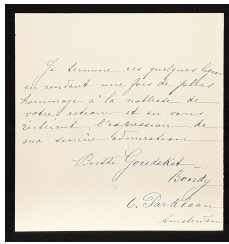 Je termine ces quelques lignes
en rendant une fois de plus
hommage à la noblesse de
votre action et en vous
réitérant l'expression de
ma sincère admiration
Berthe Goudeket
Bondy
6. Parklaan
Amsterdam